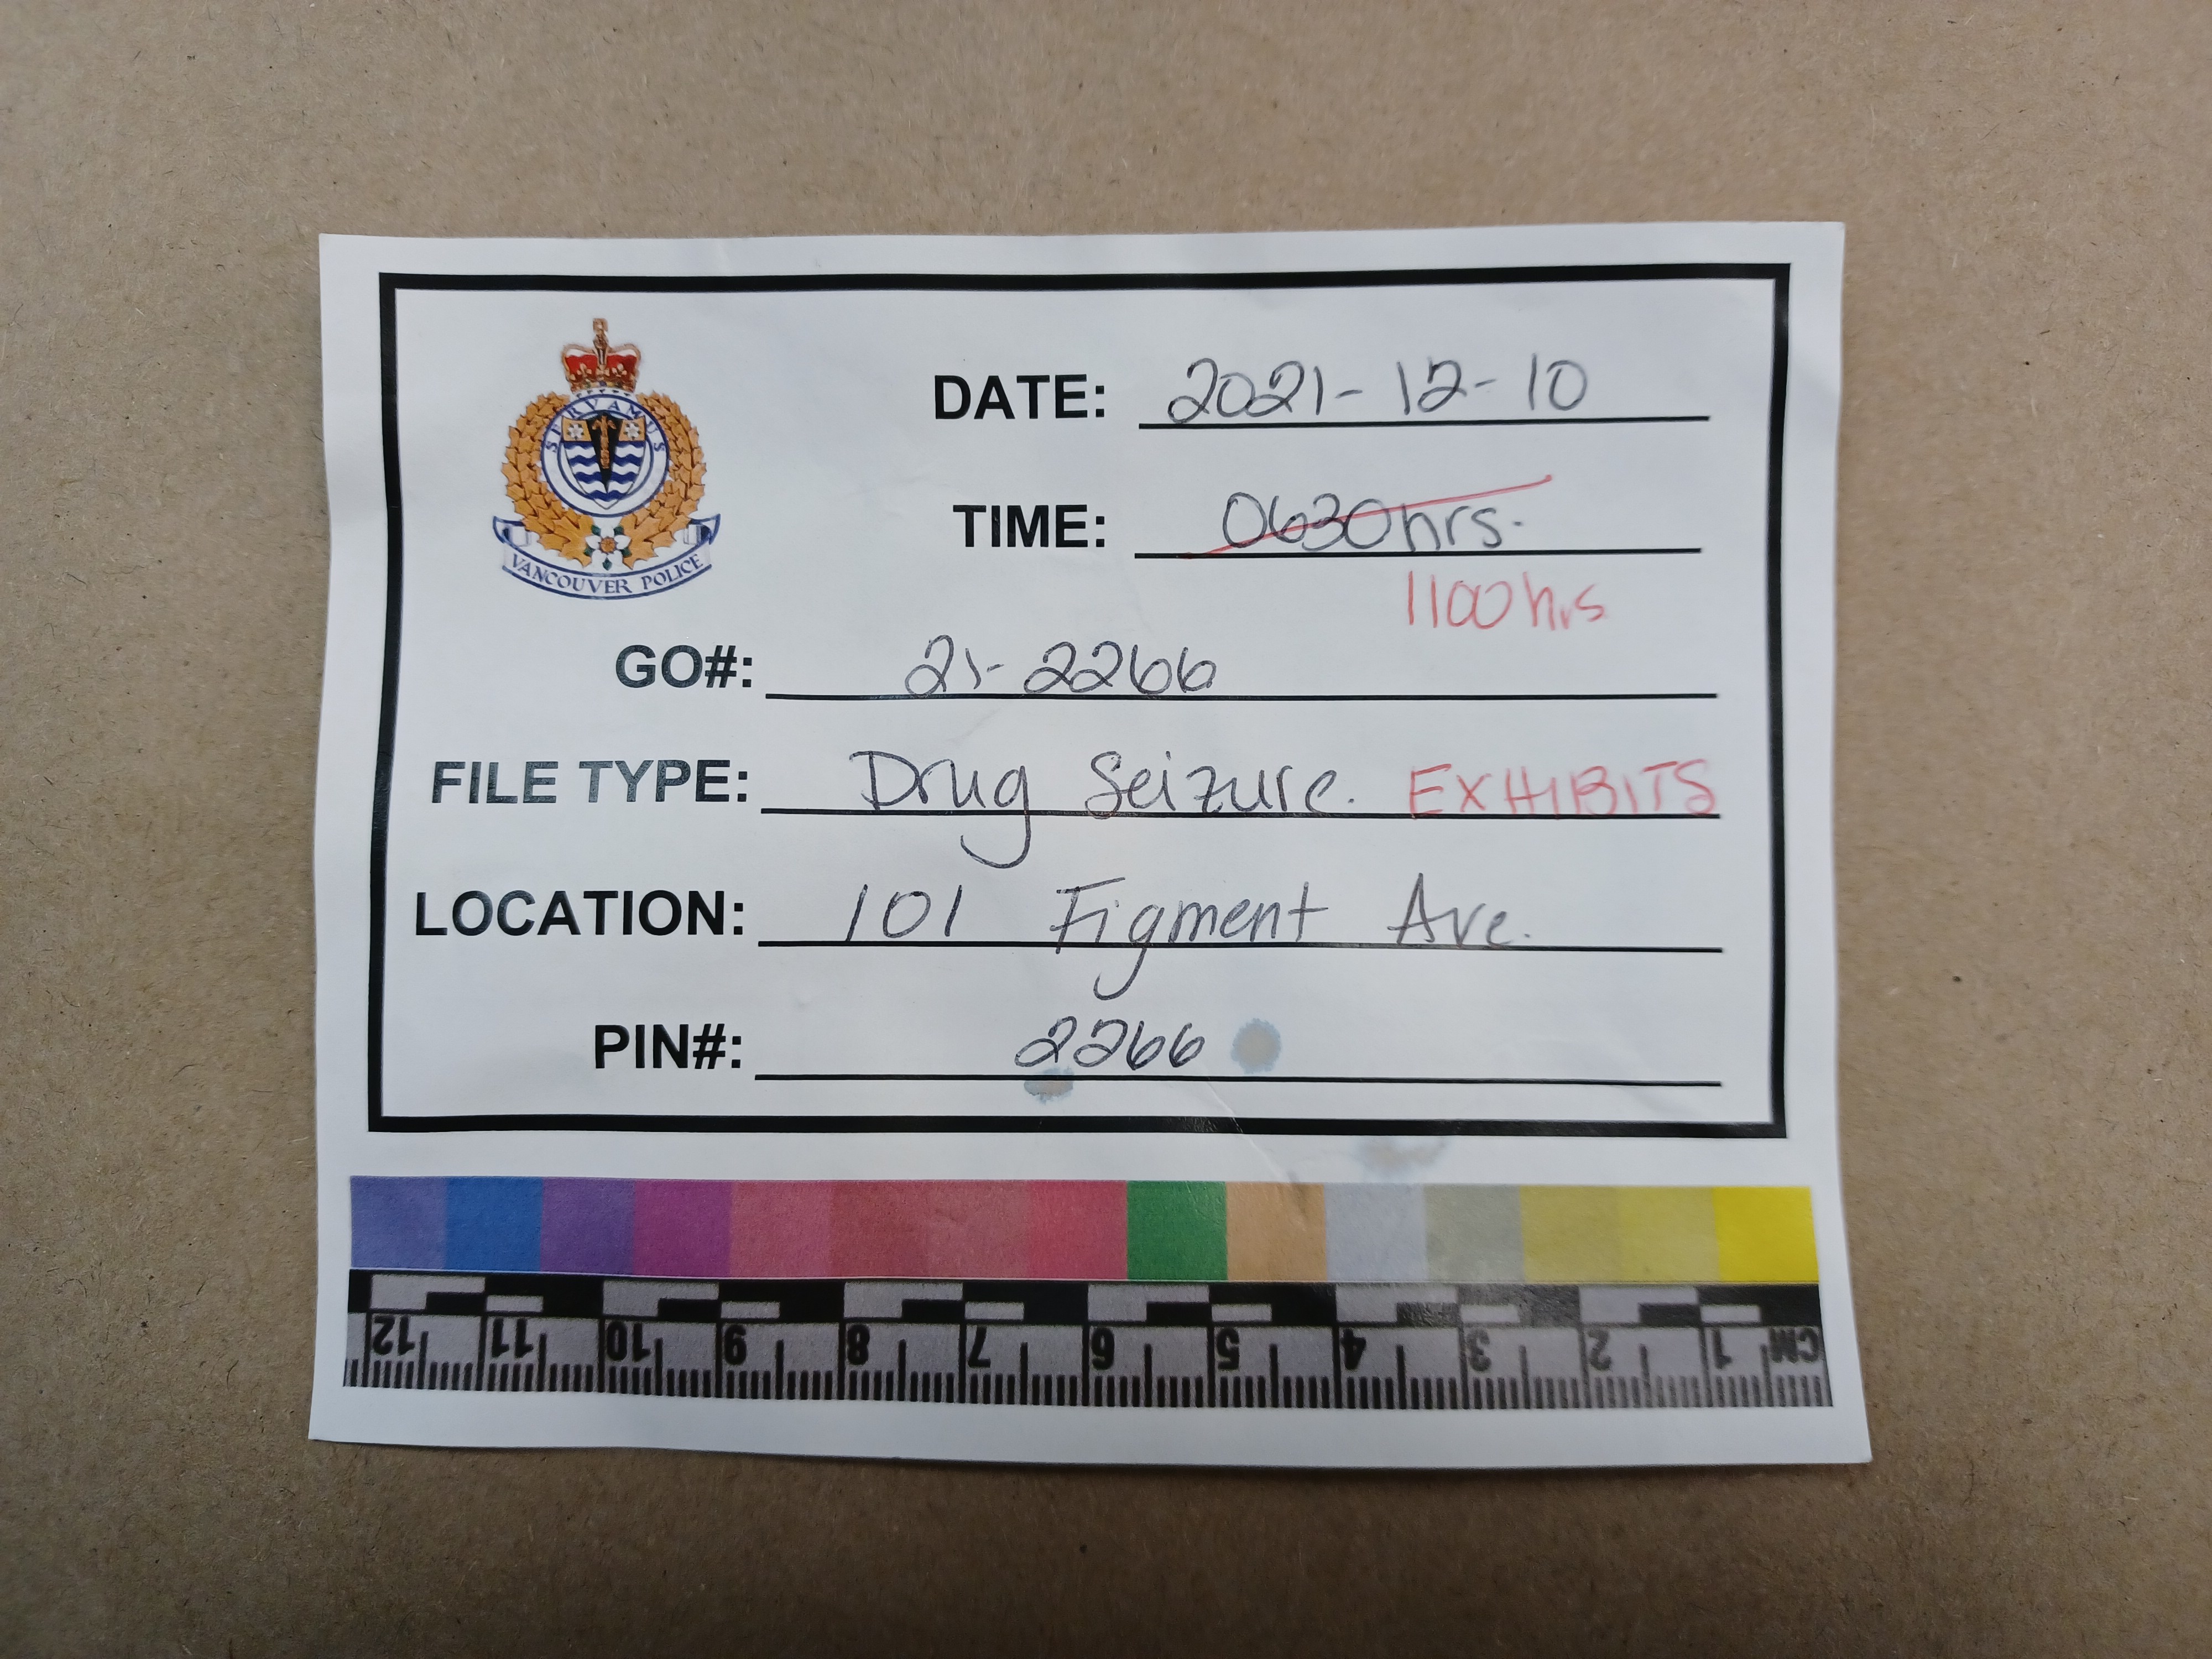 SERVAMUS
VANCOUVER POLICE
DATE: 2021-12-10
TIME: 0630hrs.
1100hrs
GO#: 21-2266
FILE TYPE: Drug Seizure. EXHIBITS
LOCATION: 101 Figment Ave.
PIN#: 2266
12 11 10 9 8 7 6 5 4 3 2 1 CM